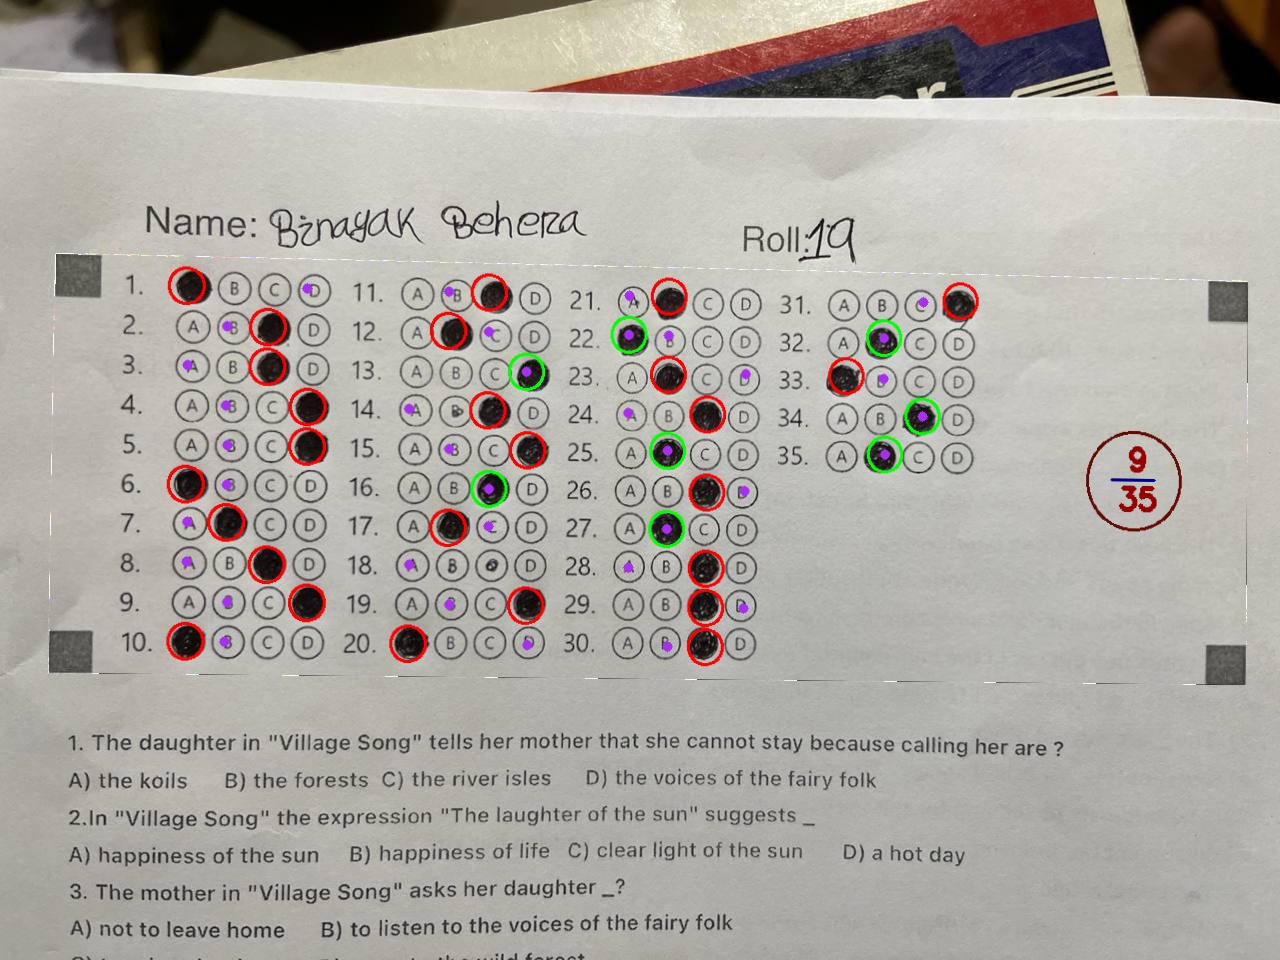 er
Name: Binayak Behera
Roll:19
1. B C D 11. A B D 21. A C D 31. A B C
2. A B D 12. A C D 22. B C D 32. A C D
3. A B D 13. A B C 23. A C D 33. B C D
4. A B C 14. A B D 24. A B D 34. A B D
5. A B C 15. A B C 25. A C D 35. A C D
6. B C D 16. A B D 26. A B D
7. A C D 17. A C D 27. A C D
8. A B D 18. A B C D 28. A B D
9. A B C 19. A B C 29. A B D
10. B C D 20. B C D 30. A B D
9
35
1. The daughter in "Village Song" tells her mother that she cannot stay because calling her are ?
A) the koils B) the forests C) the river isles D) the voices of the fairy folk
2.In "Village Song" the expression "The laughter of the sun" suggests _
A) happiness of the sun B) happiness of life C) clear light of the sun D) a hot day
3. The mother in "Village Song" asks her daughter _?
A) not to leave home B) to listen to the voices of the fairy folk